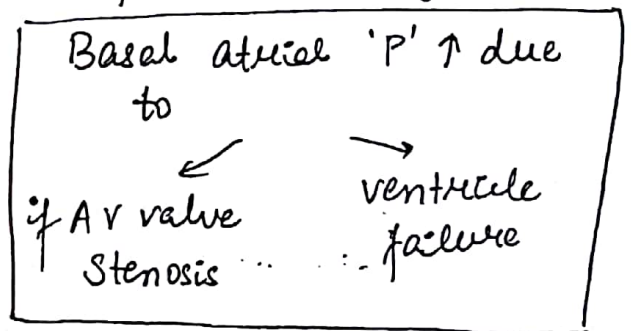 Basal atrial 'P' ↑ due
to
if AV valve
Stenosis
ventricle
failure